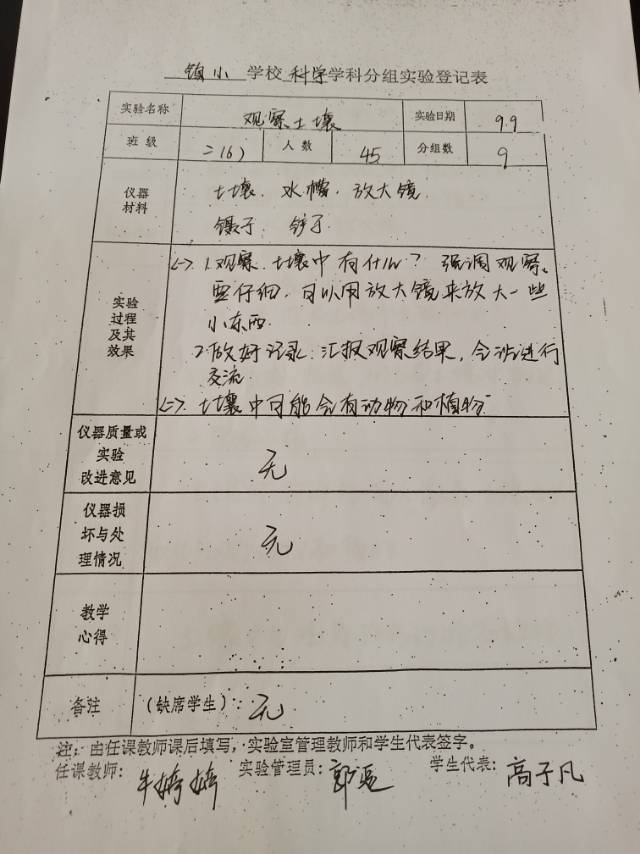 镇小 学校 科学 学科分组实验登记表
实验名称 观察土壤 实验日期 9.9
班级 二(6) 人数 45 分组数 9
仪器材料 土壤. 水槽. 放大镜
镊子. 铲子.
实验过程及其效果 <一> 1.观察.土壤中有什么? 强调观察.
要仔细.可以用放大镜来放大一些
小东西.
2.做好记录.汇报观察结果,全班进行
交流.
<二>. 土壤中可能会有动物和植物.
仪器质量或实验改进意见 无
仪器损坏与处理情况 无
教学心得
备注 (缺席学生): 无
注:由任课教师课后填写,实验室管理教师和学生代表签字。
任课教师: 牛婷婷 实验管理员: 郭 学生代表: 高子凡